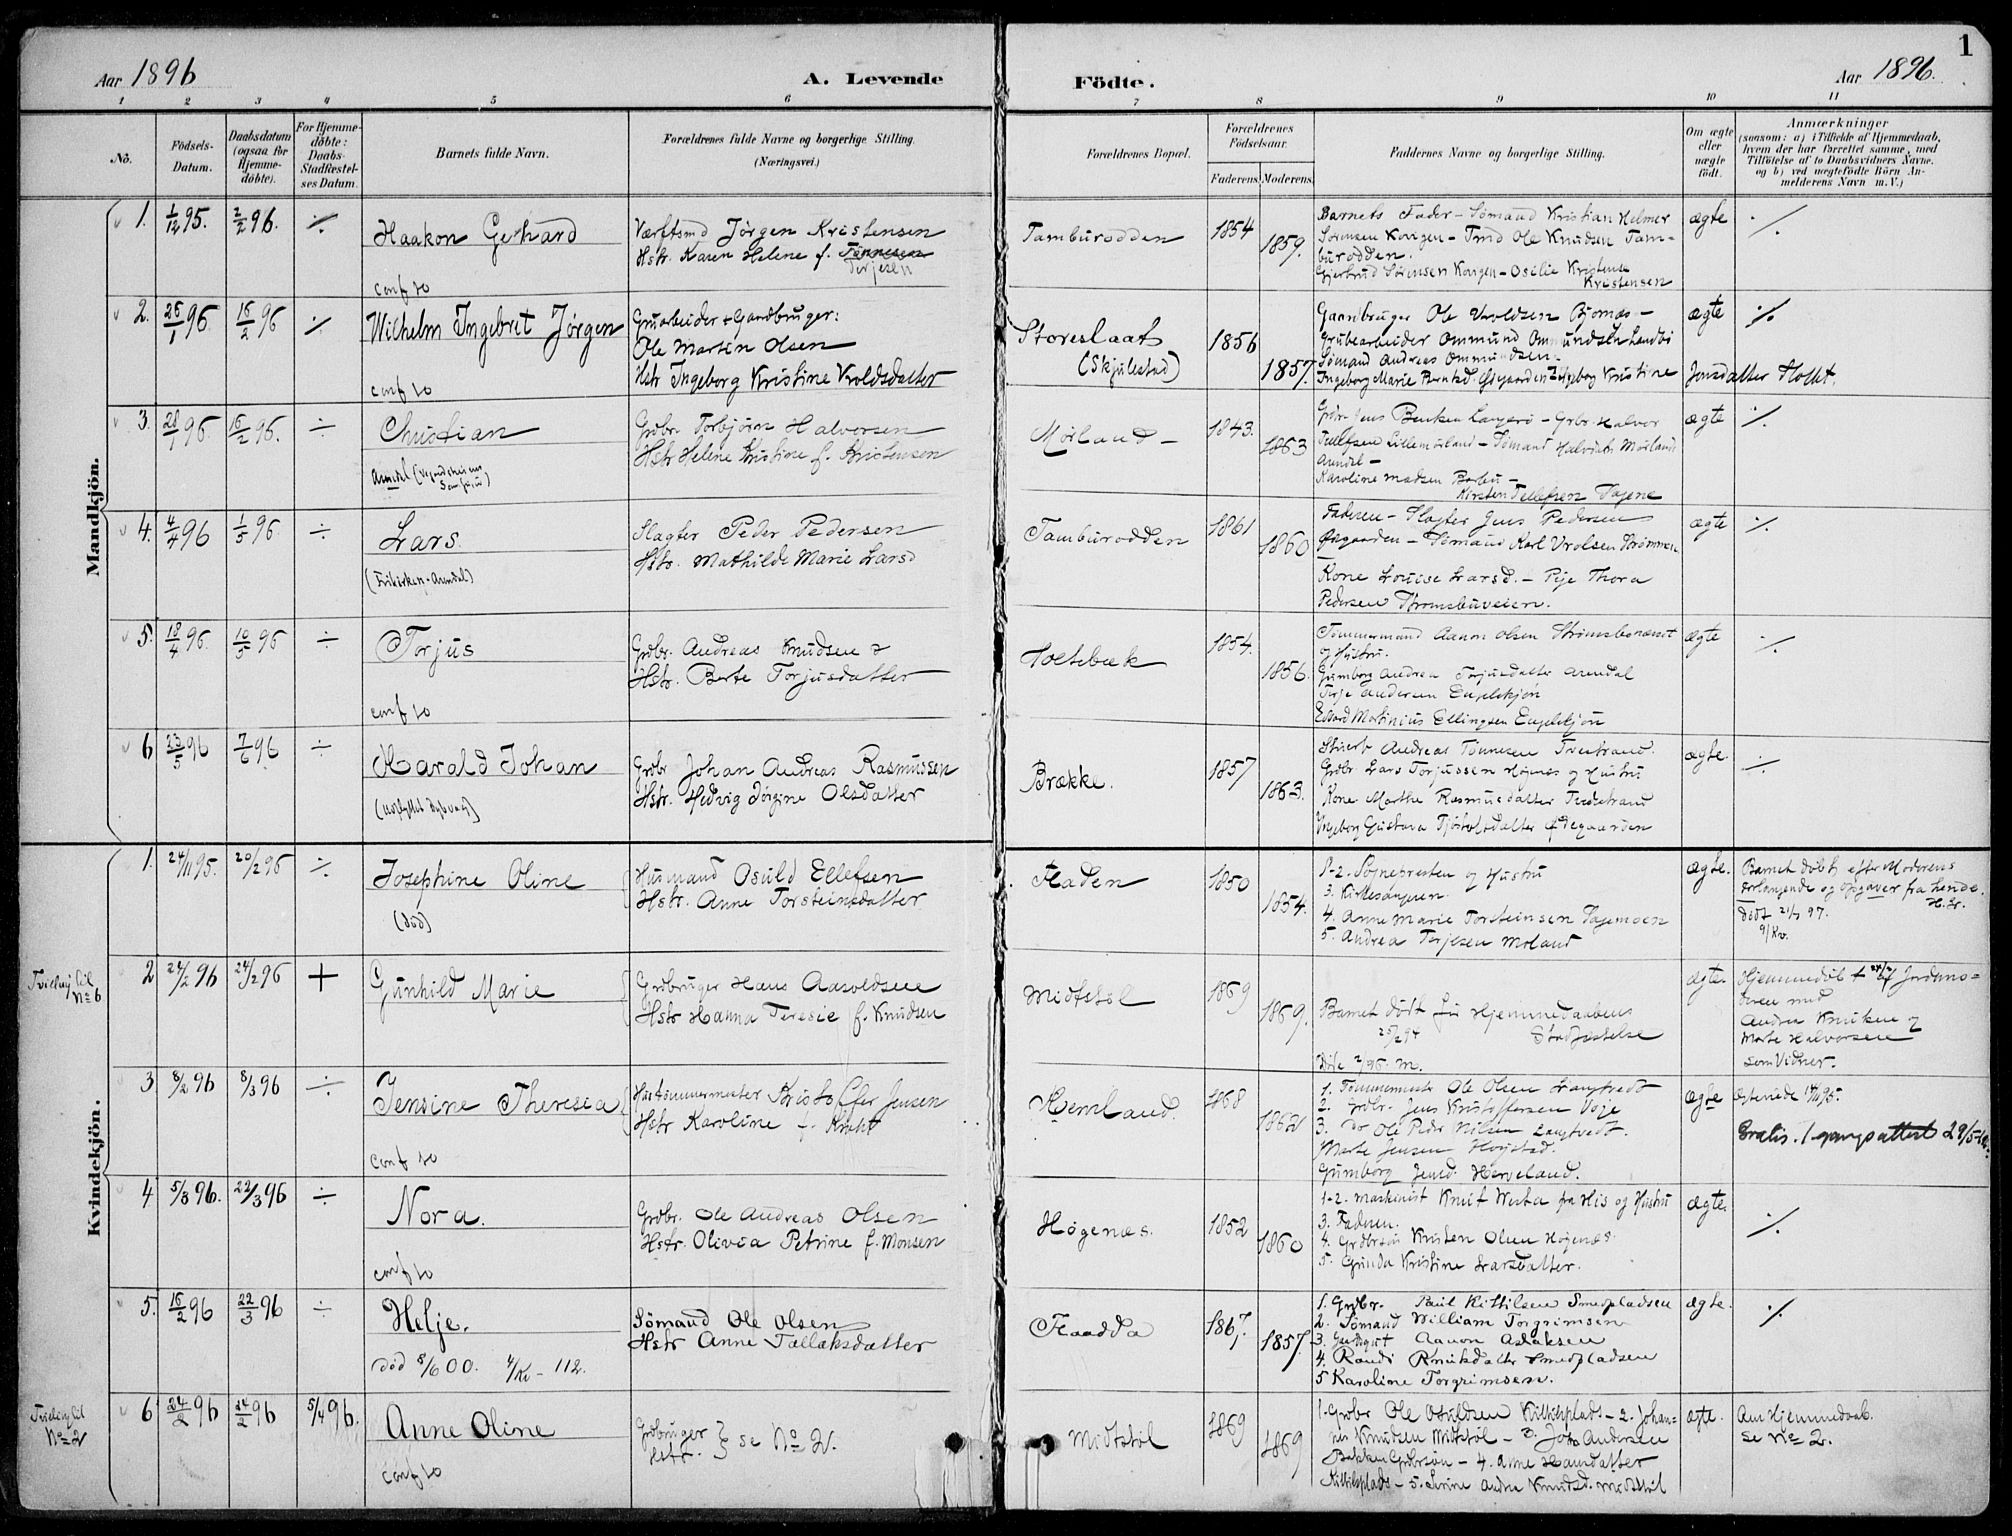 Aar 1896
A. Levende
Födte.
Aar 1896.
1
1 2 3 4 5 6 7 8 9 10 11
No.
Födsels-Datum.
Daabsdatum (ogsaa för Hjemme-döbte).
For Hjemme-döbte: Daabs-Stadfæstel-ses Datum.
Barnets fulde Navn.
Forældrenes fulde Navne og borgerlige Stilling.
(Næringsvei.)
Forældrenes Bopæl.
Forældrenes Födselsaar.
Faderens. Moderens.
Faddernes Navne og borgerlige Stilling.
Om ægte eller uægte födt.
Anmærkninger
(saasom: a) i Tilfælde af Hjemmedaab,
hvem der har forrettet samme, med
Tilföielse af to Daabsvidners Navne.
og b) ved uægtefödte Börn An-
melderens Navn m. V.)
Mandkjön.
1. 1/12 95. 2/2 96. ./.
Haakon Gerhard
conf 10
Værftsmd Jørgen Kristensen
Hstr. Karen Helene f. Tønnesen
Terjesen
Tamburodden
1854 1859.
Barnets Fader - Sømand Kristian Helmer
Sørensen Kongen - Tmd Ole Knudsen Tam-
burodden.
Gjertrud Sørensen Kongen - Osilie Kristense
Kristensen
ægte ./.
2. 26/1 96. 16/2 96 ./.
Wilhelm Ingebret Jørgen
conf 10
Gruarbeider & Gaardbruger:
Ole Martin Olsen
Hstr Ingeborg Kristine Vroldsdatter
Storeslaat
(Skjulestad)
1856 1857.
Gaardbruger Ole Vroldsen Bjornæs -
Grubearbeider Ommund Ommundsen
Sømand Andreas Ommundsen -
Ingeborg Marie Berntsd. Ødegaarden Ingeborg Kristine Jensdatter Holt.
ægte ./.
3. 28/1 96. 16/2 96. ÷
Christian
Arendal
Grdbr Torbjørn Halvorsen
Hstr Helene Kristine f. Kristensen
Mørland -
1843. 1863
Grdbr Jens Bentsen Langerø - Grbr. Halvor
Tellefsen Lillemørland - Sømand Halvdan Mørland
Arendal -
Karoline Madsen Barbu -
Kirsten Tellefsen Sagene
ægte ./.
4. 4/4 96 1/5 96. ÷
Lars.
(Frikirken - Arendal)
Slagter Peder Pedersen
Hstr. Mathilde Marie Larsd
Tamburodden
1861 1860
Faderen - Slagter Jens Pedersen
Øegaarden - Sømand Karl Vrolsen Strømmen
Kone Lovise Larsd. - Pige Thora
Pedersen Strømsbuveien.
ægte ./.
5. 18/4 96. 10/5 96 ÷
Torjus
conf 10
Grdbr. Andreas Knudsen &
Hstr. Berte Torjusdatter
Holtebæk
1854. 1856.
Tømmermand Aanon Olsen Strømsbonæset
og Hustru.
Gumborg Andrea Torjusdatter Arendal
Terje Andersen Engelskjøn
Edvard Martinius Ellingsen Engelskjøn
ægte ./.
6 23/5 96 7/6 96 ÷
Harald Johan
Grdbr Johan Andreas Rasmussen
Hstr. Hedvig Jørgine Olsdatter
Brække.
1857 1863.
Andreas Tønnesen Tvedestrand.
Grdbr Lars Torjussen Højnes og Hustru
Kone Marthe Rasmusdatter Tvedestrand
Ingeborg Gustava Tjøstolvsdatter Ødegaarden
ægte. ÷
Kvindekjön.
1. 24/11 95. 20/2 96 ÷
Josephine Oline
(død)
Husmand Osuld Ellefsen
Hstr. Anne Torsteinsdatter
Fladen
1850 1854.
1-2. Sognepresten og Hustru
3. Kirkesangeren
4. Anne Marie Torsteinsen Sagemoen
5. Andrea Terjesen Moland
ægte.
Barnet døbt efter Moderens
Forlangende og Opgaver fra hende.
Død 21/7 97.
Tvilling til
No 6
2 24/2 96 24/2 96 +
Gunhild Marie
Grdbruger Hans Aasvoldsen
Hstr Hanna Teresie f. Knudsen
Midtstøl
1869 1869.
Barnet død før Hjemmedaabens
Stadfæstelse
ægte.
Hjemmedøbt 24/2 af Jordmo-
deren med
Andrea Knutsen og
Marte Halvorsen
som Vidner.
3 8/2 96 8/3 96 ÷
Jensine Theresia
conf 10
Hustømmermester Kristoffer Jensen
Hstr Karoline f. Knut
Hemland.
1868 1862
1. Tømmermester Ole Olsen Langtvedt
2. Grdbr. Jens Kristoffersen Voje
3. Do Ole Peder Nilsen Langtvedt.
Marte Jensen Højstad.
Gumborg Jensd. Herveland.
ægte
4 5/3 96. 22/3 96 ÷
Nora.
conf 10
Grdbr. Ole Andreas Olsen
Hstr. Olivia Petrine f. Monsen
Høgenæs.
1852 1860
1-2. Maskinist Knut Westa fra His og Hustru
3. Faderen.
4. Grdbrsøn Kristen Olsen Høgenæs.
5. Gunda Kristine Larsdatter.
ægte. ./.
5. 16/2 96 22/3 96 ÷
Helje.
død 8/6 00. 4/Kv - 112.
Sømand Ole Olsen
Hstr Anne Tallaksdatter
Flaadda
1867. 1857.
1. Grdbr. Paul Kittilsen Smedpladsen
2. Sømand William Torgrimsen
3. Aanon Aslaksen
4. Randi Knutsdatter Smedpladsen
5 Karoline Torgrimsen.
ægte. ./.
Tvilling til
No 2
6 24/2 96 24/2 96 5/4 96.
Anne Oline
conf 10
Grdbruger
Hstr. } se No 2.
Midtstøl
1869 1869
1. Grdbr Ole Osuldsen Kittilsplads - 2. Johan-
nes Knudsen Midtstøl - 3. John Andersen
Bakken Grdbrsøn - 4. Anne Hansdatter
Kittilsplads - 5. Sirine Andrea Knudsd. Midtstøl
ægte.
Am Hjemmedaab.
se No 2.